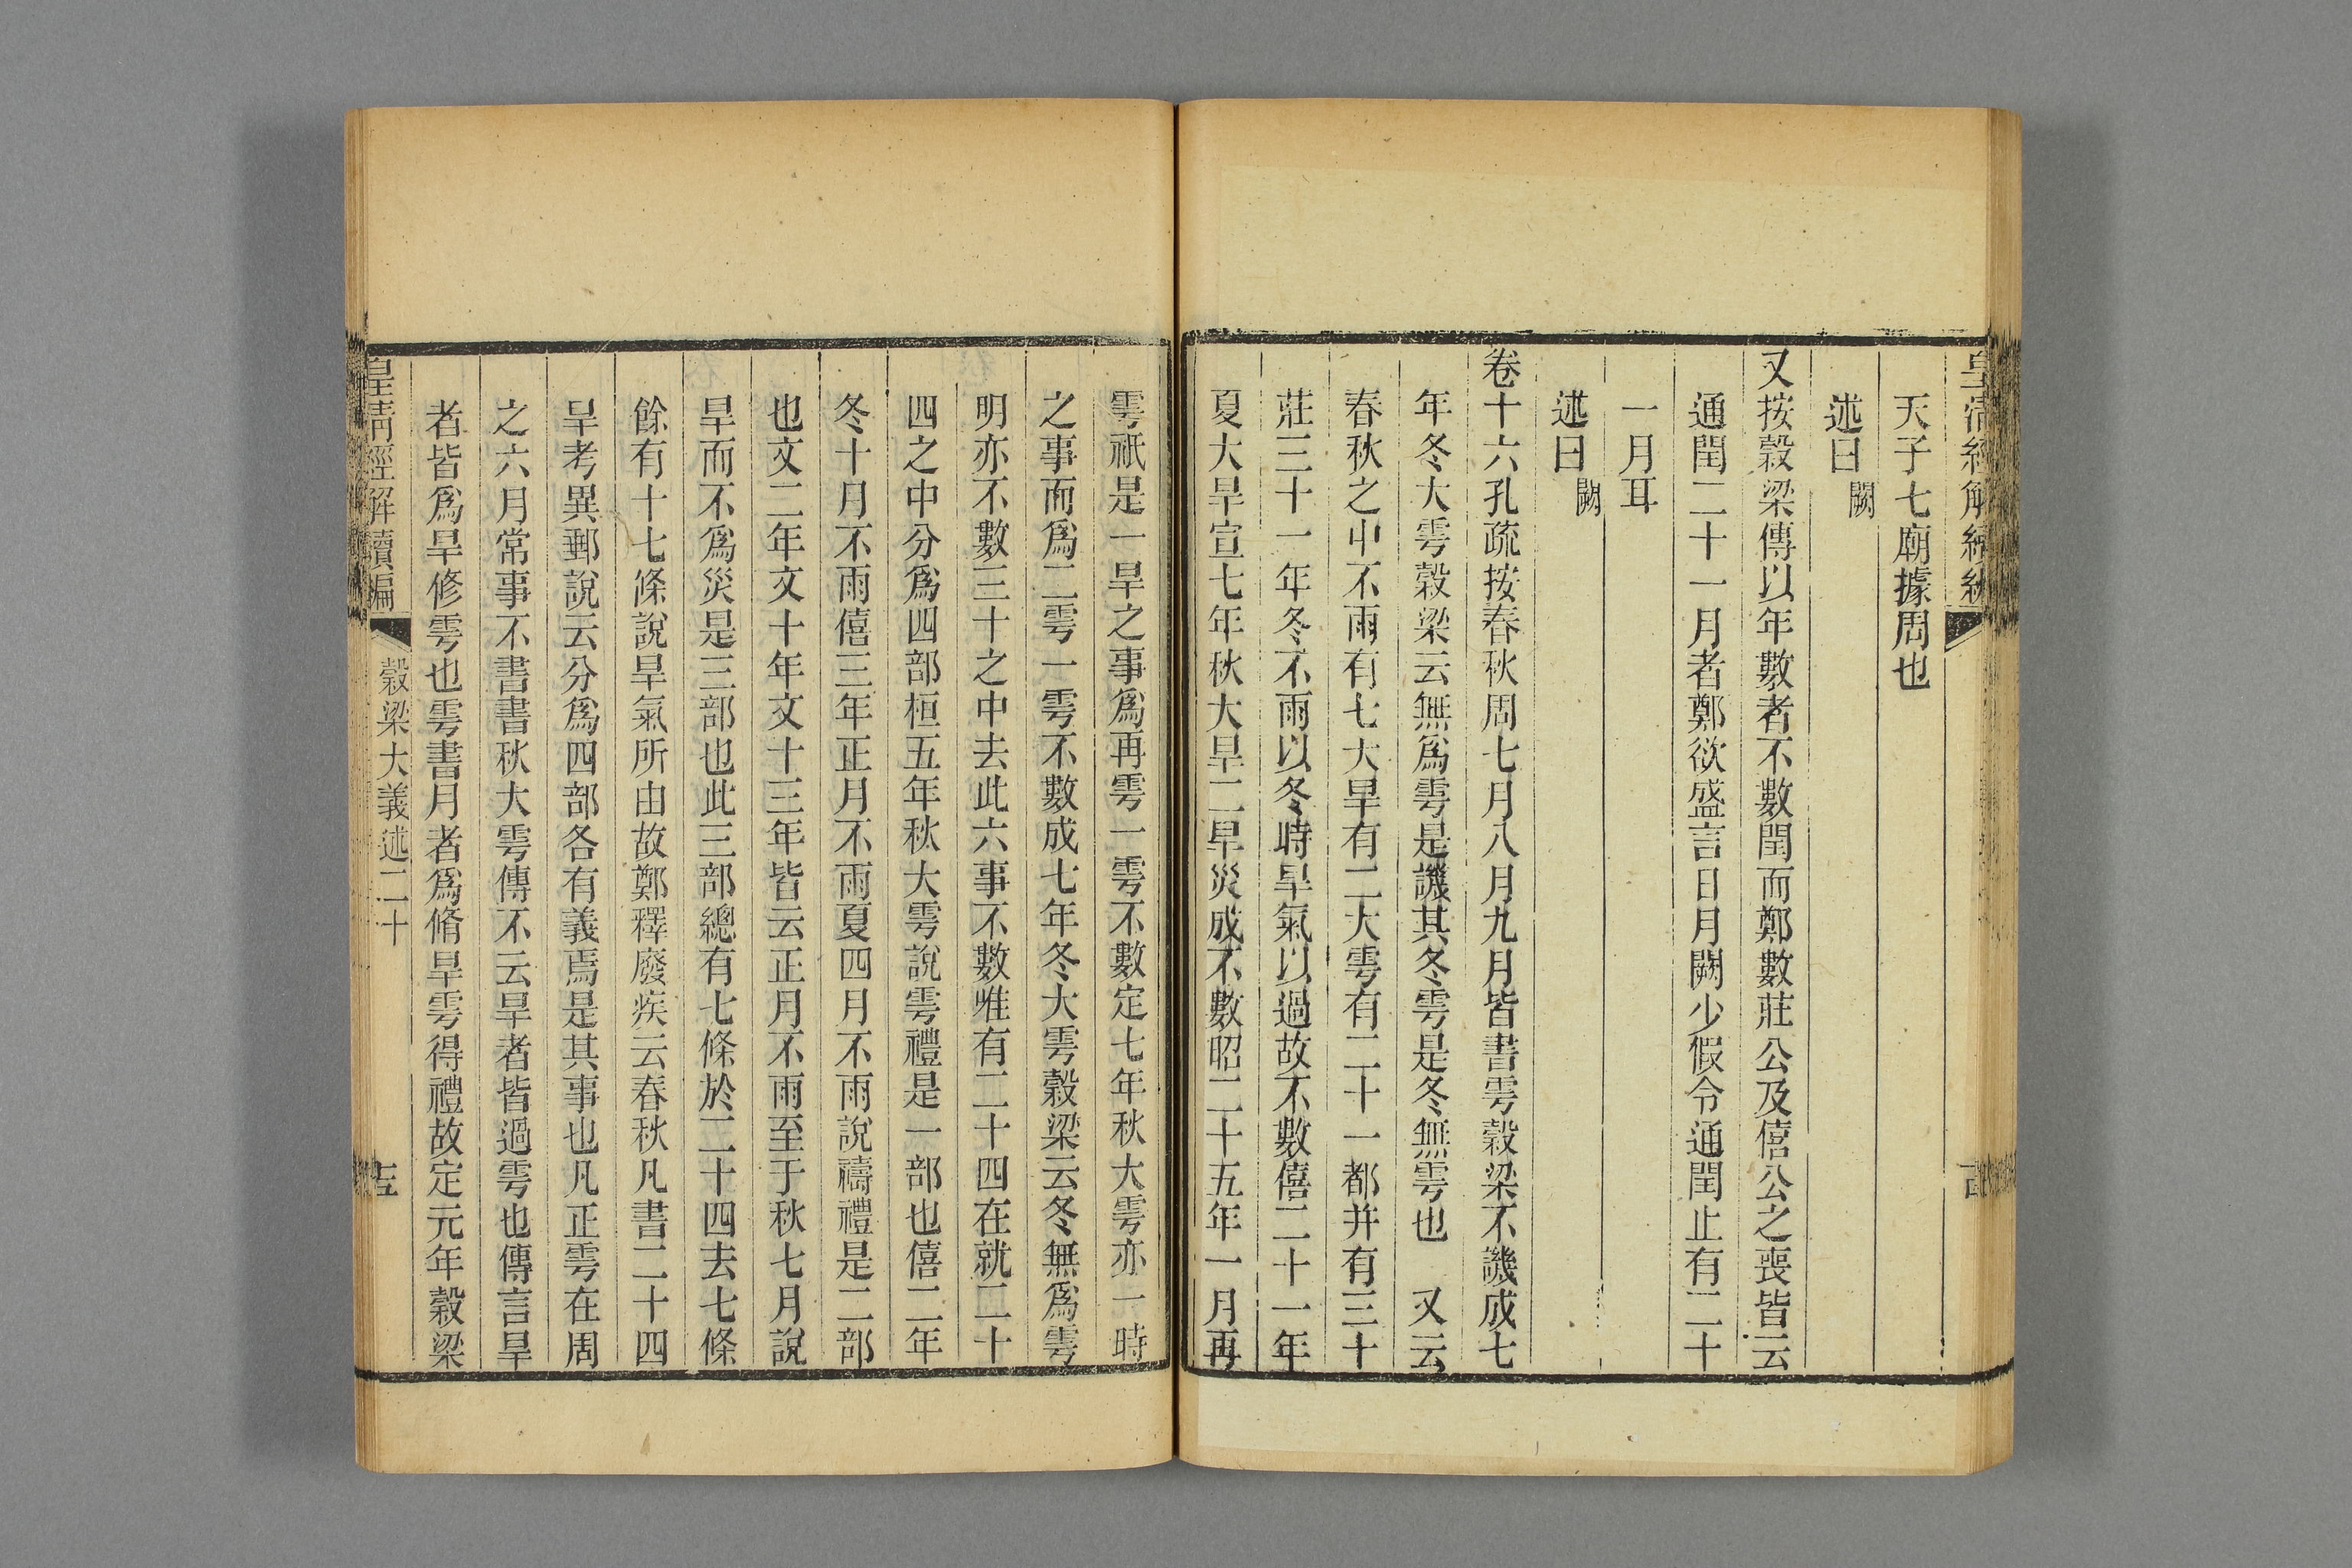 皇清經解續編
天子七廟據周也
述曰闕
又按穀梁傳以年數者不數閏而鄭數莊公及僖公之喪皆云
通閏二十一月者鄭欲盛言日月闕少假令通閏止有二十
一月耳
述曰闕
卷十六孔疏按春秋周七月八月九月皆書雩穀梁不譏成七
年冬大雩穀梁云無爲雩是譏其冬雩是冬無雩也 又云
春秋之中不雨有七大旱有二大雩有二十一都并有三十
莊三十一年冬不雨以冬時旱氣以過故不數僖二十一年
夏大旱宣七年秋大旱二旱災成不數昭二十五年一月再
雩祇是一旱之事爲再雩一雩不數定七年秋大雩亦一時
之事而爲二雩一雩不數成七年冬大雩穀梁云冬無爲雩
明亦不數三十之中去此六事不數唯有二十四在就二十
四之中分爲四部桓五年秋大雩說雩禮是一部也僖二年
冬十月不雨僖三年正月不雨夏四月不雨說禱禮是二部
也文二年文十年文十三年皆云正月不雨至于秋七月說
旱而不爲災是三部也此三部總有七條於二十四去七條
餘有十七條說旱氣所由故鄭釋廢疾云春秋凡書二十四
旱考異郵說云分爲四部各有義焉是其事也凡正雩在周
之六月常事不書書秋大雩傳不云旱者皆過雩也傳言旱
者皆爲旱修雩也雩書月者爲脩旱雩得禮故定元年穀梁
皇清經解續編 穀梁大義述二十